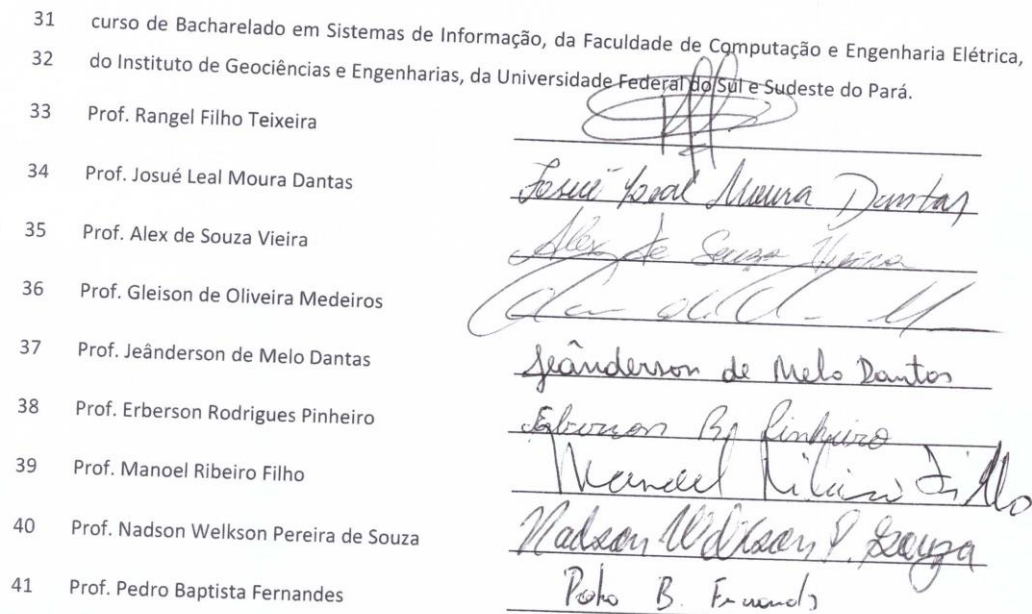 31 curso de Bacharelado em Sistemas de Informação, da Faculdade de Computação e Engenharia Elétrica,
32 do Instituto de Geociências e Engenharias, da Universidade Federal do Sul e Sudeste do Pará.
33 Prof. Rangel Filho Teixeira
34 Prof. Josué Leal Moura Dantas Josué Leal Moura Dantas
35 Prof. Alex de Souza Vieira Alex de Souza Vieira
36 Prof. Gleison de Oliveira Medeiros
37 Prof. Jeânderson de Melo Dantas Jeânderson de Melo Dantas
38 Prof. Erberson Rodrigues Pinheiro Erberson R. Pinheiro
39 Prof. Manoel Ribeiro Filho Manoel Ribeiro Filho
40 Prof. Nadson Welkson Pereira de Souza Nadson Welkson P. Souza
41 Prof. Pedro Baptista Fernandes Pedro B. Fernandes